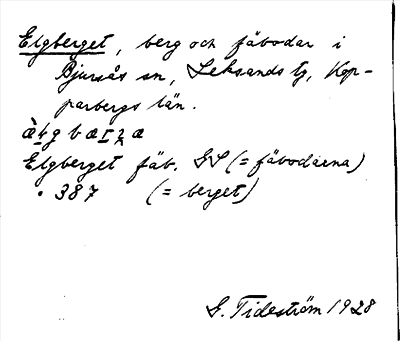 Elgberget, berg och fäbodar i
Bjursås sn, Leksands tg, Kop-
parbergs län.
Elgberget fäb. GS (= fäbodarna)
" 387 (= berget)
G. Tideström 1928